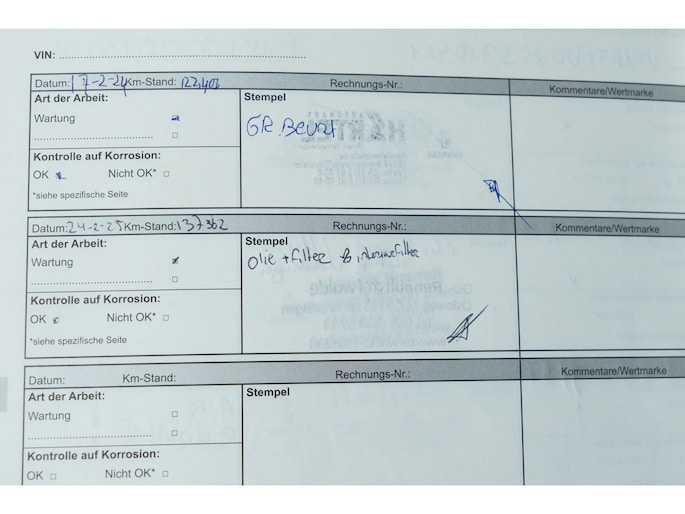 VIN: ..........................................................................
Datum: 17-2-24 Km-Stand: 122,402 Rechnungs-Nr.: Kommentare/Wertmarke
Art der Arbeit: Stempel
Wartung
GR. Beurt
Kontrolle auf Korrosion:
OK Nicht OK*
*siehe spezifische Seite
Datum: 24-2-25 Km-Stand: 137362 Rechnungs-Nr.: Kommentare/Wertmarke
Art der Arbeit: Stempel
Wartung
Olie + filter & interieurfilter
Kontrolle auf Korrosion:
OK Nicht OK*
*siehe spezifische Seite
Datum: Km-Stand: Rechnungs-Nr.: Kommentare/Wertmarke
Art der Arbeit: Stempel
Wartung
Kontrolle auf Korrosion:
OK Nicht OK*